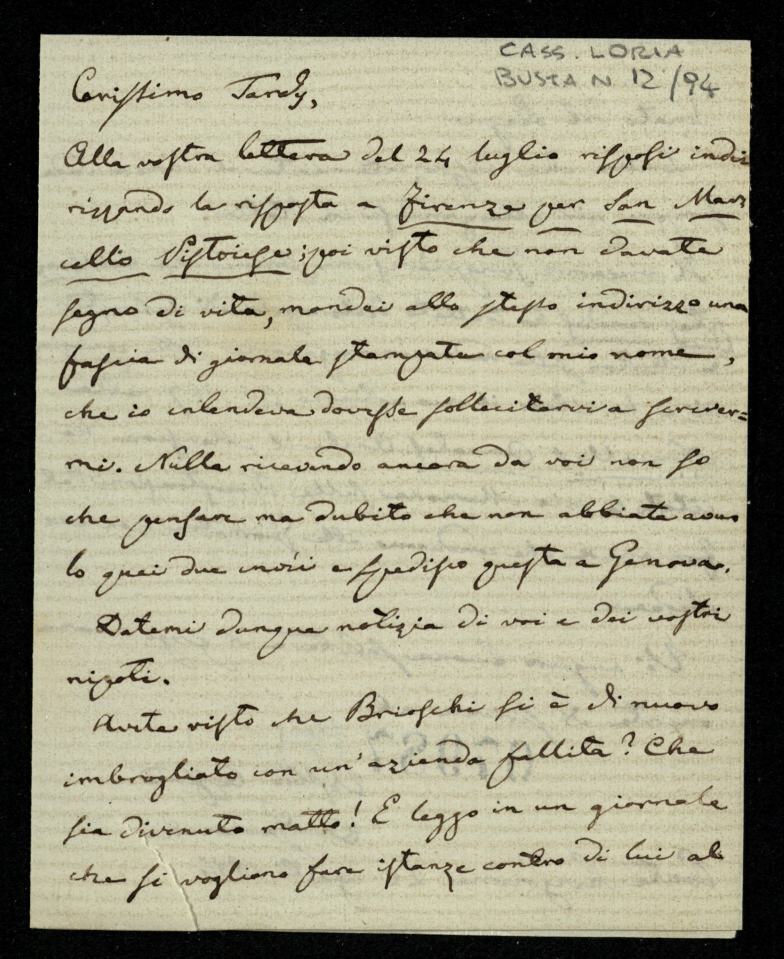 CASS. LORIA
BUSTA N 12/94
Carissimo Tardy,
Alla vostra lettera del 24 luglio risposi indi
rizzando la risposta a Firenze per San Mar
cello Pistoiese; poi visto che non davate
segno di vita, mandai allo stesso indirizzo una
fascia di giornale stampata col mio nome,
che io intendeva dovesse sollecitarvi a scriver=
mi. Nulla ricevendo ancora da voi non so
che pensare ma dubito che non abbiate avu
to quei due invii e spedisco questa a Genova.
Datemi dunque notizia di voi e dei vostri
nipoti.
Avete visto che Brioschi si è di nuovo
imbrogliato con un'azienda fallita? Che
sia divenuto matto! E leggo in un giornale
che si vogliono fare istanze contro di lui al